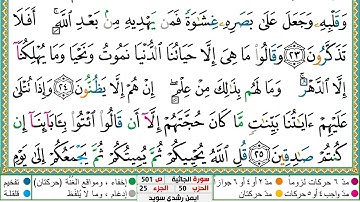 وَقَلْبِهِۦ وَجَعَلَ عَلَىٰ بَصَرِهِۦ غِشَٰوَةً فَمَن يَهْدِيهِ مِنۢ بَعْدِ ٱللَّهِ ۚ أَفَلَا
تَذَكَّرُونَ ٢٣ وَقَالُوا۟ مَا هِىَ إِلَّا حَيَاتُنَا ٱلدُّنْيَا نَمُوتُ وَنَحْيَا وَمَا يُهْلِكُنَآ
إِلَّا ٱلدَّهْرُ ۚ وَمَا لَهُم بِذَٰلِكَ مِنْ عِلْمٍ ۖ إِنْ هُمْ إِلَّا يَظُنُّونَ ٢٤ وَإِذَا تُتْلَىٰ
عَلَيْهِمْ ءَايَٰتُنَا بَيِّنَٰتٍ مَّا كَانَ حُجَّتَهُمْ إِلَّآ أَن قَالُوا۟ ٱئْتُوا۟ بِـَٔابَآئِنَآ إِن
كُنتُمْ صَٰدِقِينَ ٢٥ قُلِ ٱللَّهُ يُحْيِيكُمْ ثُمَّ يُمِيتُكُمْ ثُمَّ يَجْمَعُكُمْ إِلَىٰ يَوْمِ
مدّ ٦ حركات لزوما مدّ ٢ أو ٤ أو ٦ جوازا سورة الجاثية ص 501 إخفاء ، ومواقع الغنّة (حركتان) تفخيم
مدّ واجب ٤ أو ٥ حركات مدّ حركتان الحزب 50 الجزء 25 إدغام ، وما لا يُلفَظ قلقلة
أيمن رشدي سويد